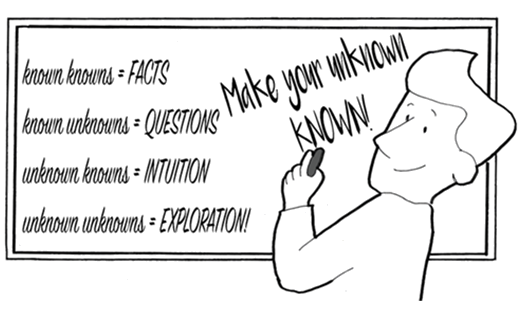 known knowns = FACTS
known unknowns = QUESTIONS
unknown knowns = INTUITION
unknown unknowns = EXPLORATION!
Make your unknown
KNOWN!